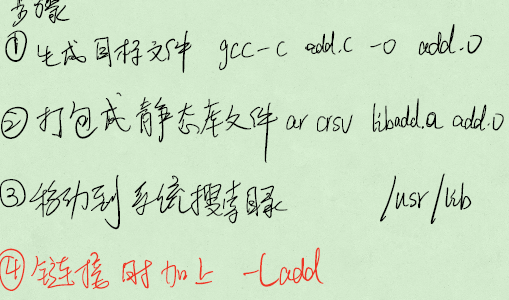 步骤
① 生成目标文件 gcc -c add.c -o add.o
② 打包成静态库文件 ar crsv libadd.a add.o
③ 移动到系统搜索目录 /usr/lib
④ 链接时加上 -ladd